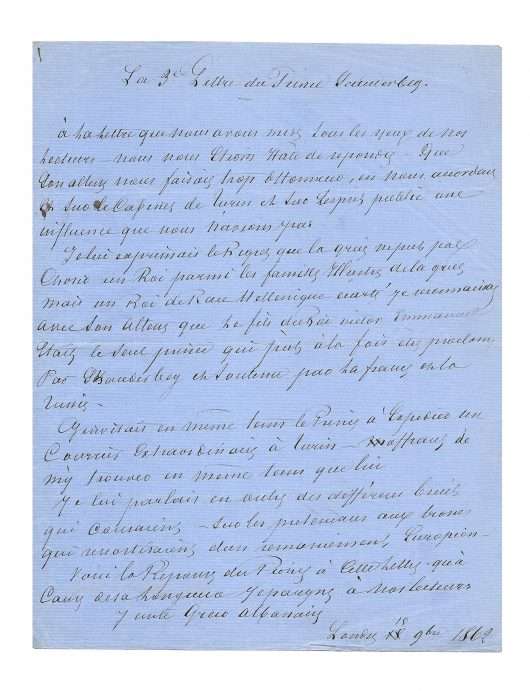 La 3e Lettre du Prince Scanderbeg.
à la lettre que nous avons mise sous les yeux de nos
lecteurs nous nous étions hâté de répondre. Que
Son altesse nous faisait trop d'honneur, en nous accordant
sur le Cabinet de Turin et sur l'esprit public une
influence que nous n'avions pas
Je lui exprimais le Regret que la grèce ne put pas
Choisir un Roi parmi les familles illustres de la grèce
mais un Roi de Race Hellenique écarté je reconnaissais
avec Son altesse que le fils du Roi victor Emmanuel
Etait le seul prince qui put à la fois etre proclamé
Par Skanderbeg et soutenu par la france et la
russie -
J'invitais en même tems le Prince à Expedier un
Courrier Extraordinaire à turin - m'offrant de
m'y trouver en même tems que lui
Je lui parlais en outre des différents bruits
qui couraient, - sur les pretendans aux trones
qui ressortiraient d'un remaniement, Européen -
Voici la Reponse du Prince à Cette lettre qu'à
Cause de sa longueur J'epargne à nos lecteurs
Greco albanais
Londres 18 9bre 1862